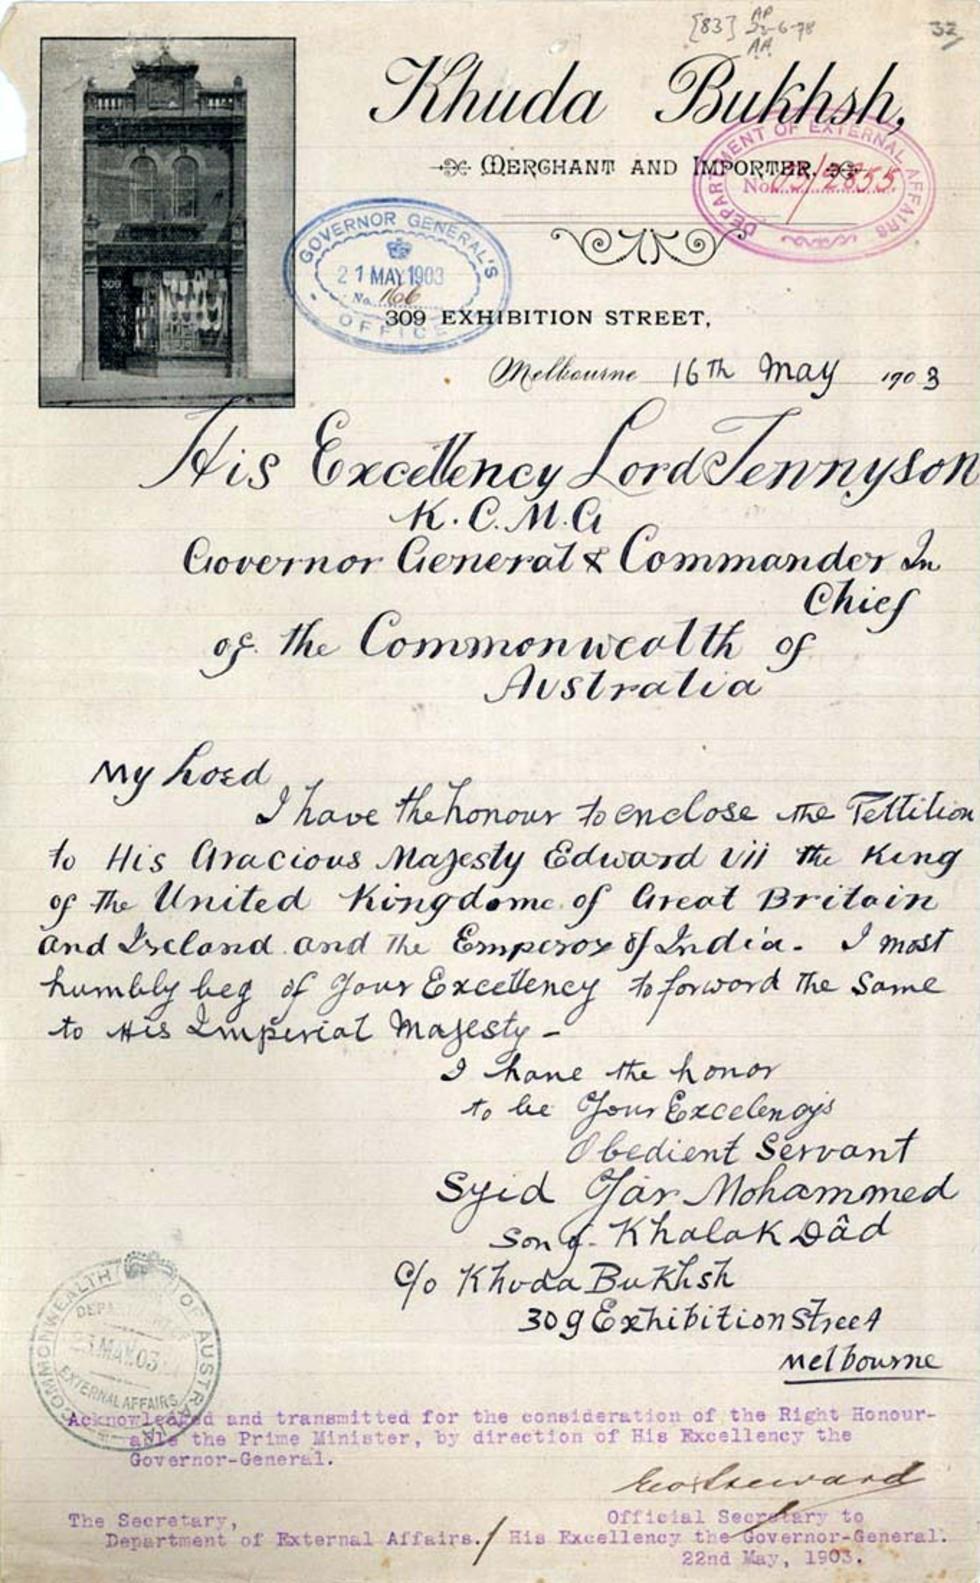 [83]
32
Khuda Bukhsh,
MERCHANT AND IMPORTER.
DEPARTMENT OF EXTERNAL AFFAIRS
No. 03/2855
GOVERNOR GENERAL'S
21 MAY 1903
No. 166
OFFICE
309
309 EXHIBITION STREET,
Melbourne 16Th May 1903
His Excellency Lord Tennyson
K.C.M.G
Governor General & Commander In
Chief
of the Commonwealth of
Australia
My Lord
I have the honour to enclose the Petition
to His Gracious Majesty Edward Vii the King
of the United Kingdome of Great Britain
and Ireland and the Emperor of India. I most
humbly beg of Your Excellency to forward the Same
to His Imperial Majesty -
I have the honor
to be Your Excelency's
Obedient Servant
Syid Yar Mohammed
Son of Khalak Dâd
C/o Khuda Bukhsh
309 Exhibition Street
Melbourne
COMMONWEALTH OF AUSTRALIA
MAY.03
EXTERNAL AFFAIRS
Acknowledged and transmitted for the consideration of the Right Honour-
able the Prime Minister, by direction of His Excellency the
Governor-General.
Geo Steward
The Secretary,
Department of External Affairs.
Official Secretary to
His Excellency the Governor-General.
22nd May, 1903.